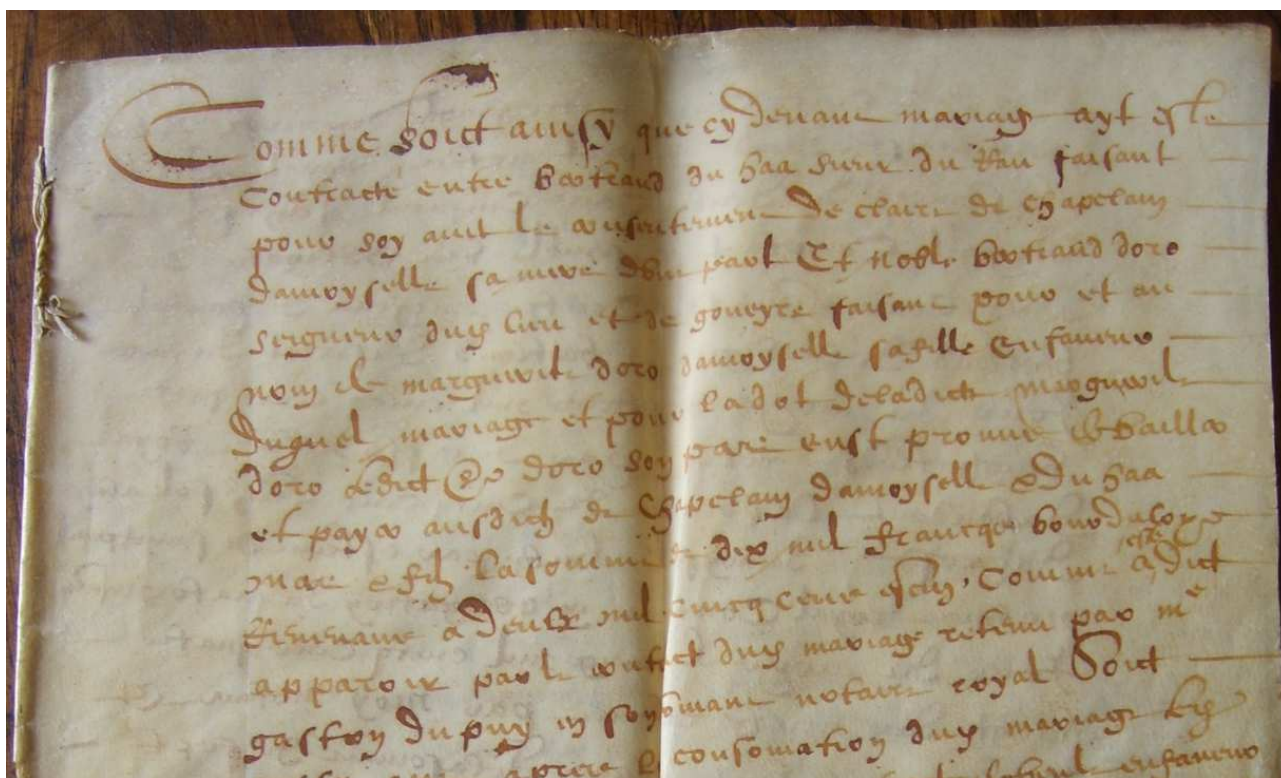 Comme soict ainsy que cy devant mariage ayt este
Contracte entre bertrand du haa sieur du faisant
pour soy avec le consentement de claire de Chapelain
damoyselle sa mere dune part Et noble bertrand doro
seigneur dud et de goueyte faisant pour et au
nom de marguerite doro damoyselle sa fille En faveur
duquel mariage et pour la dot de ladicte marguerite
doro ledict sr doro son pere eust promis de bailler
et payer ausdictz de Chapelain damoyselle & du haa
mere & filz la somme de dix mil francqz bourdaloys
Revenant a deux mil cincq cens escus, Comme a este dict
apparoir par le contract dud mariage retenu par me
gaston dupuy notaire royal Soict
apres la consomation dud mariage
en faveur